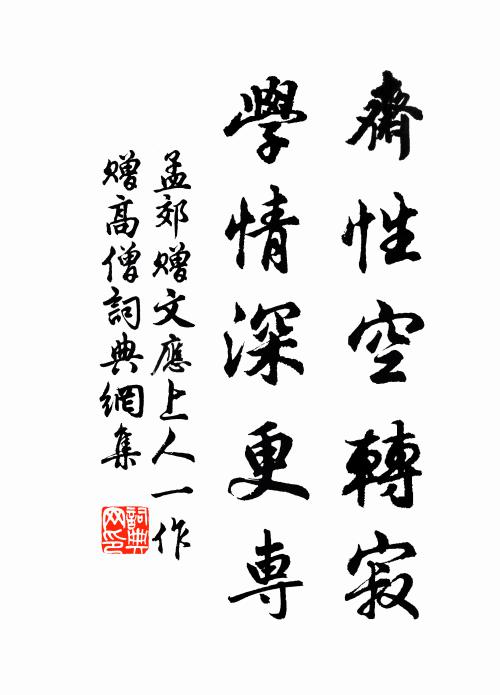 齋性空轉寂
學情深更專
孟郊贈文應上人一作
贈高僧詞典網集
詞典
网印